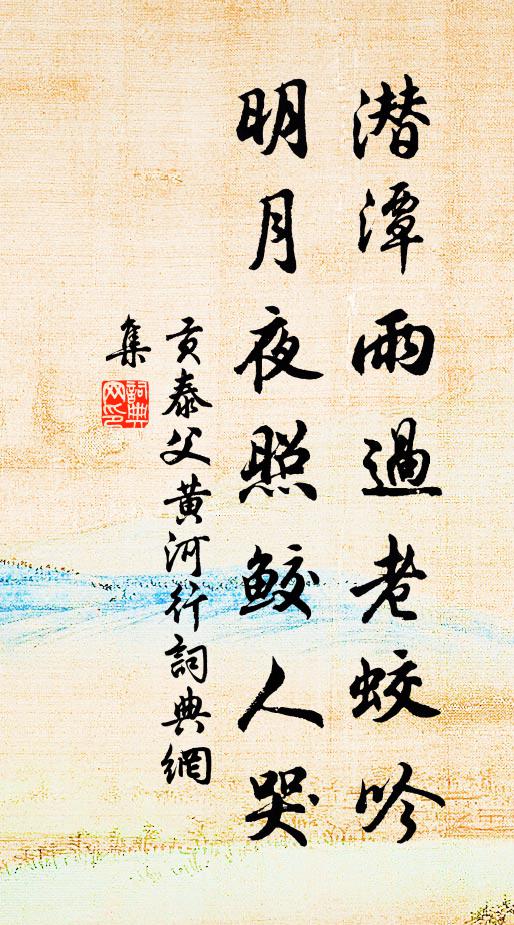 潜潭雨過老蛟吟
明月夜照鮫人哭
贡泰父黄河行詞典網
集
詞典
网印